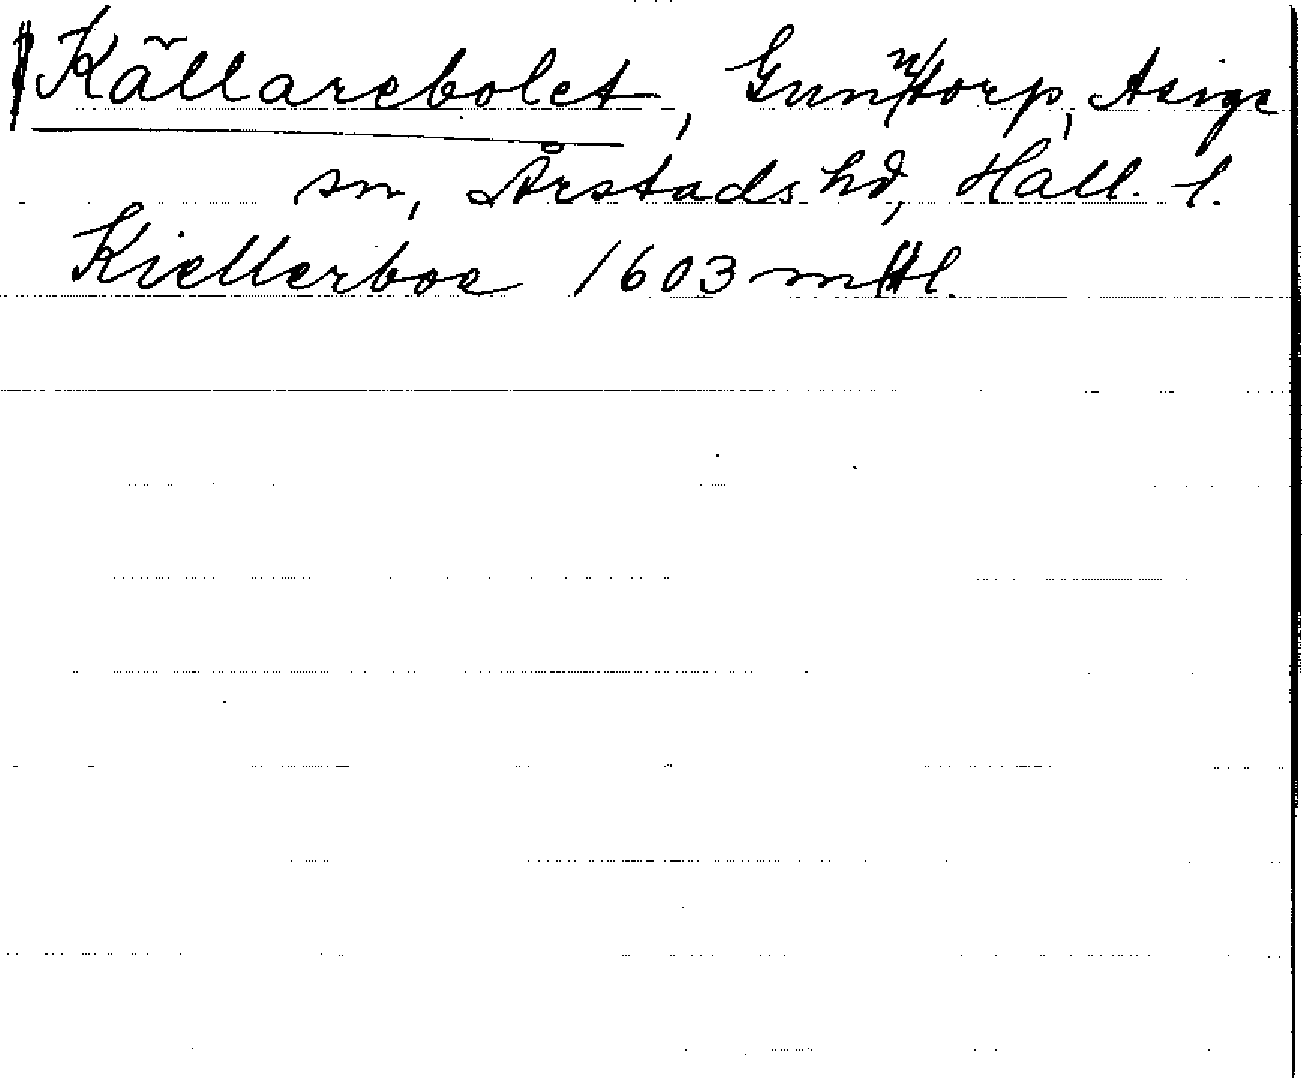 Källarebolet, Gunntorp, Asige
sn, Årstads hd, Hall. l.
Kiellerboe 1603 mtl.